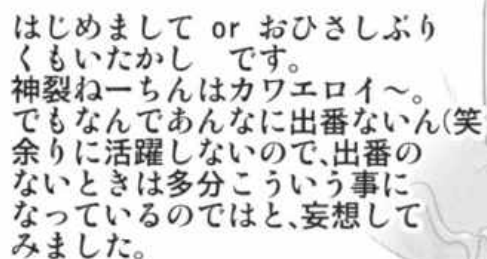 はじめまして or おひさしぶり
くもいたかし　です。
神裂ねーちんはカワエロイ～。
でもなんであんなに出番ないん(笑
余りに活躍しないので、出番の
ないときは多分こういう事に
なっているのではと、妄想して
みました。